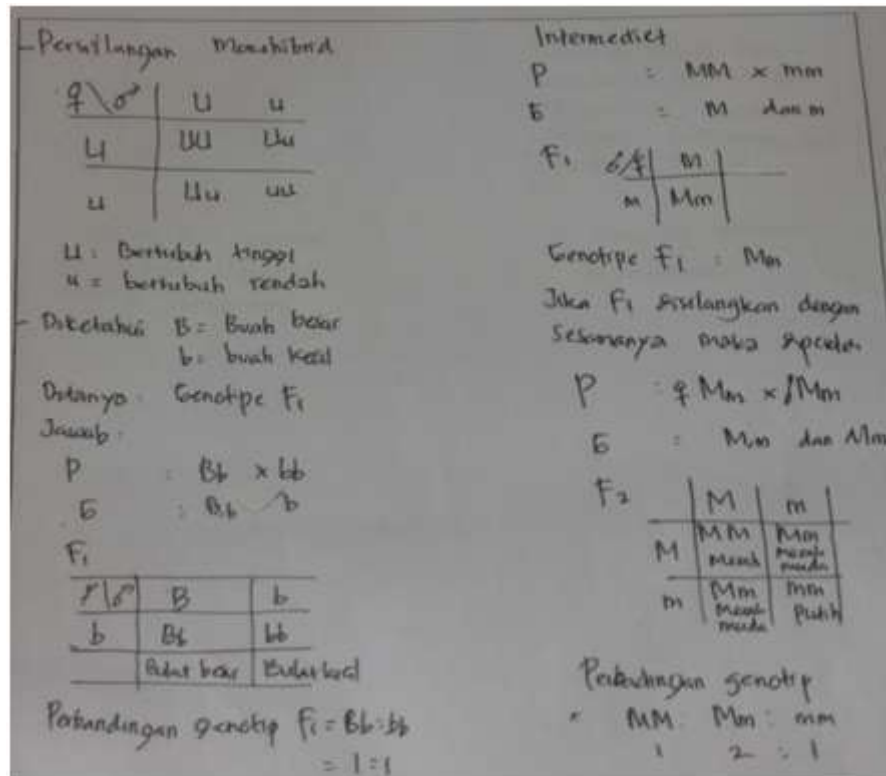 - Persilangan Monohibrid
♀\♂ | U | u
U | UU | Uu
u | Uu | uu
U : Bertubuh tinggi
u = bertubuh rendah
- Diketahui B = Buah besar
b = buah kecil
Ditanya : Genotipe F1
Jawab :
P : Bb × bb
G : B,b b
F1
♀\♂ | B | b
b | Bb | bb
Bulat besar | Bulat kecil
Perbandingan genotip F1 = Bb : bb
= 1 : 1
Intermediet
P : MM × mm
G : M dan m
F1 ♂/♀ | M
m | Mm
Genotipe F1 : Mm
Jika F1 disilangkan dengan
Sesamanya maka
P : ♀ Mm × ♂ Mm
G : M,m dan M,m
F2
M | m
M | MM | Mm
Merah | Merah muda
m | Mm | mm
Merah muda | Putih
Perbandingan genotip
= MM : Mm : mm
1 2 : 1